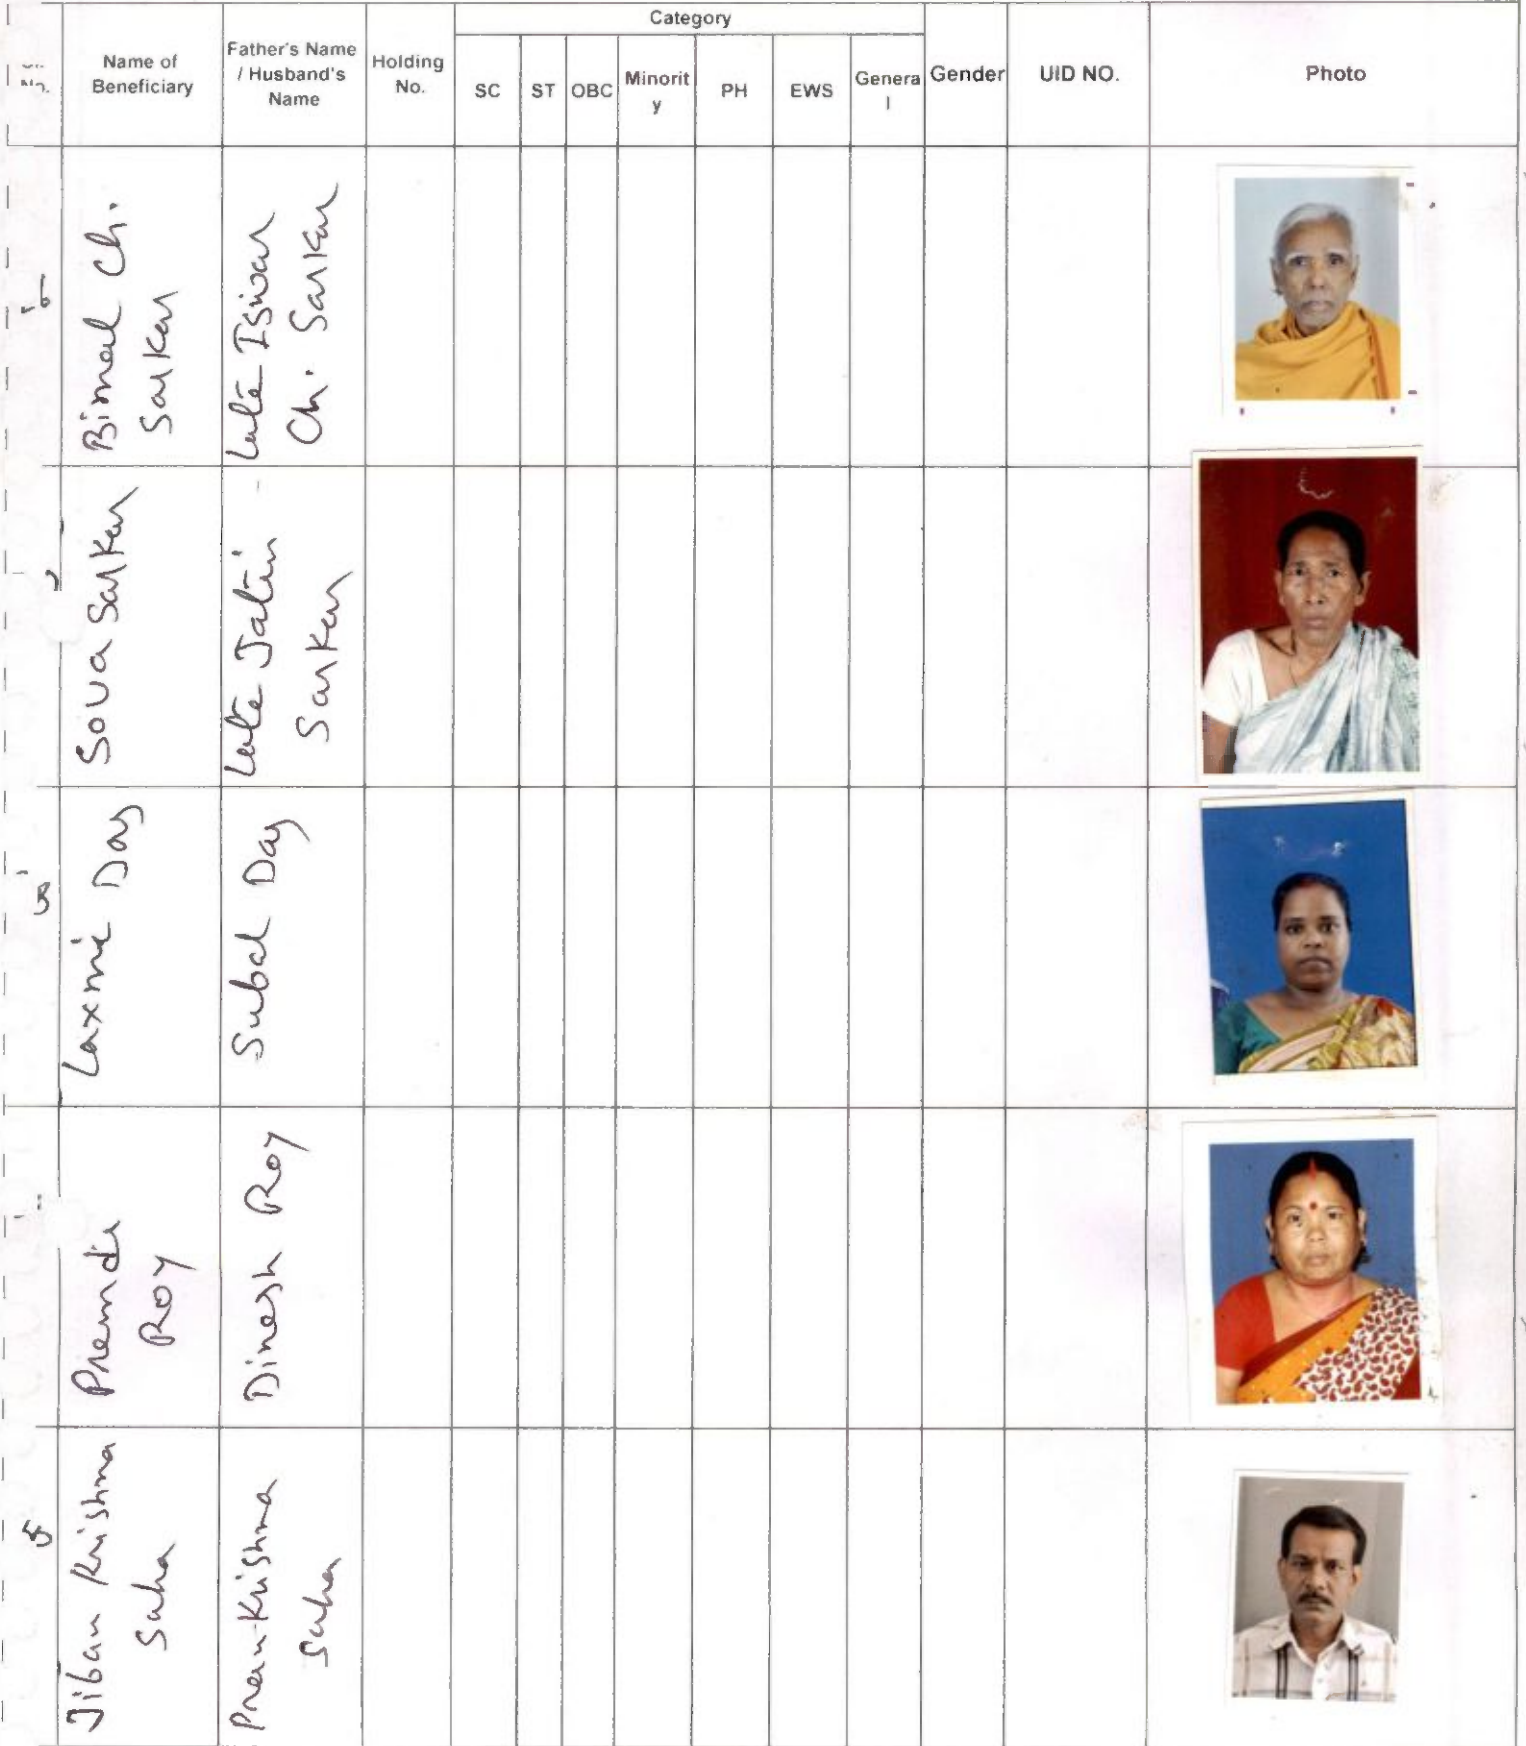 Category
Sl. No.
Name of Beneficiary
Father's Name / Husband's Name
Holding No.
SC
ST
OBC
Minority
PH
EWS
General
Gender
UID NO.
Photo
Bimal Ch.
Sarkar
Late Iswar
Ch. Sarkar
Sova Sarkar
Late Jatin
Sarkar
Laxmi Das
Subal Das
Roy
Dinesh Roy
Jiban Krishna
Saha
Pran Krishna
Saha